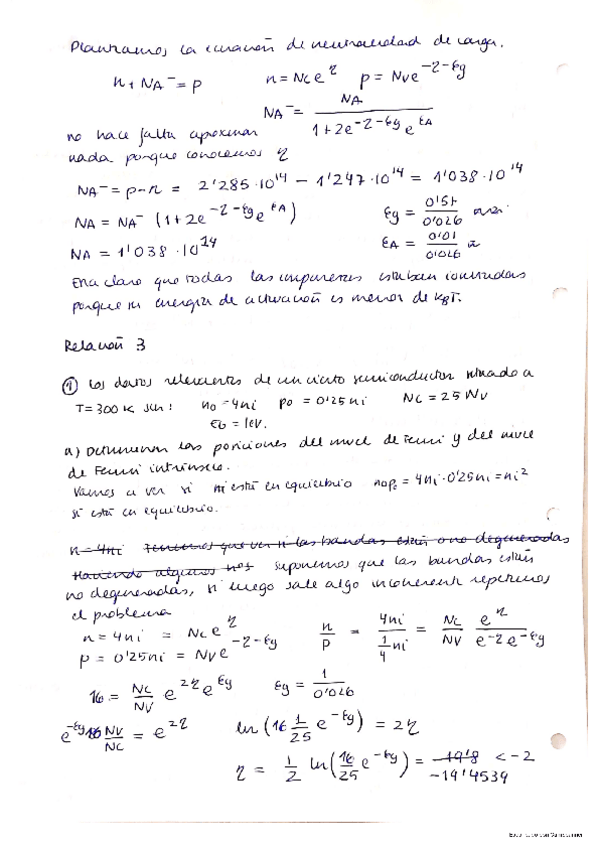 Planteamos la ecuación de neutralidad de carga.
n + NA⁻ = p    n = Nc e^η    p = Nv e^(-η-εg)
NA⁻ = NA / (1 + 2e^(-η-εg) e^(εA))
no hace falta aproximar
nada porque conocemos η
NA⁻ = p-n = 2'285·10^14 - 1'247·10^14 = 1'038·10^14
NA = NA⁻ (1 + 2e^(-η-εg) e^(εA))    εg = / 0'026
NA = 1'038·10^14    εA = 0'01 / 0'026
Era claro que todas las impurezas estaban ionizadas
porque su energía de activación es menor de kBT.
Relación 3
① Los datos relevantes de un cierto semiconductor situado a
T=300 K son: n0 = 4ni    p0 = 0'25ni    Nc = 25 Nv
= 1eV.
a) Determinar las posiciones del nivel de Fermi y del nivel
de Fermi intrínseco.
Vamos a ver si está en equilibrio n0p0 = 4ni·0'25ni = ni²
sí está en equilibrio.
n = 4ni Tenemos que ver si las bandas están o no degeneradas
Haciendo algunos suponemos que las bandas están
no degeneradas, si luego sale algo incoherente repetimos
el problema
n = 4ni = Nc e^η    n/p = 4ni / (1/4 ni) = Nc/Nv e^η / (e^-η e^-εg)
p = 0'25ni = Nv e^(-η-εg)
16 = Nc/Nv e^(2η) e^(εg)    εg = 1 / 0'026
e^(-εg) 16 Nv/Nc = e^(2η)    ln (16 1/25 e^(-εg)) = 2η
η = 1/2 ln (16/25 e^(-εg)) = -19'8 < -2
-19'4539